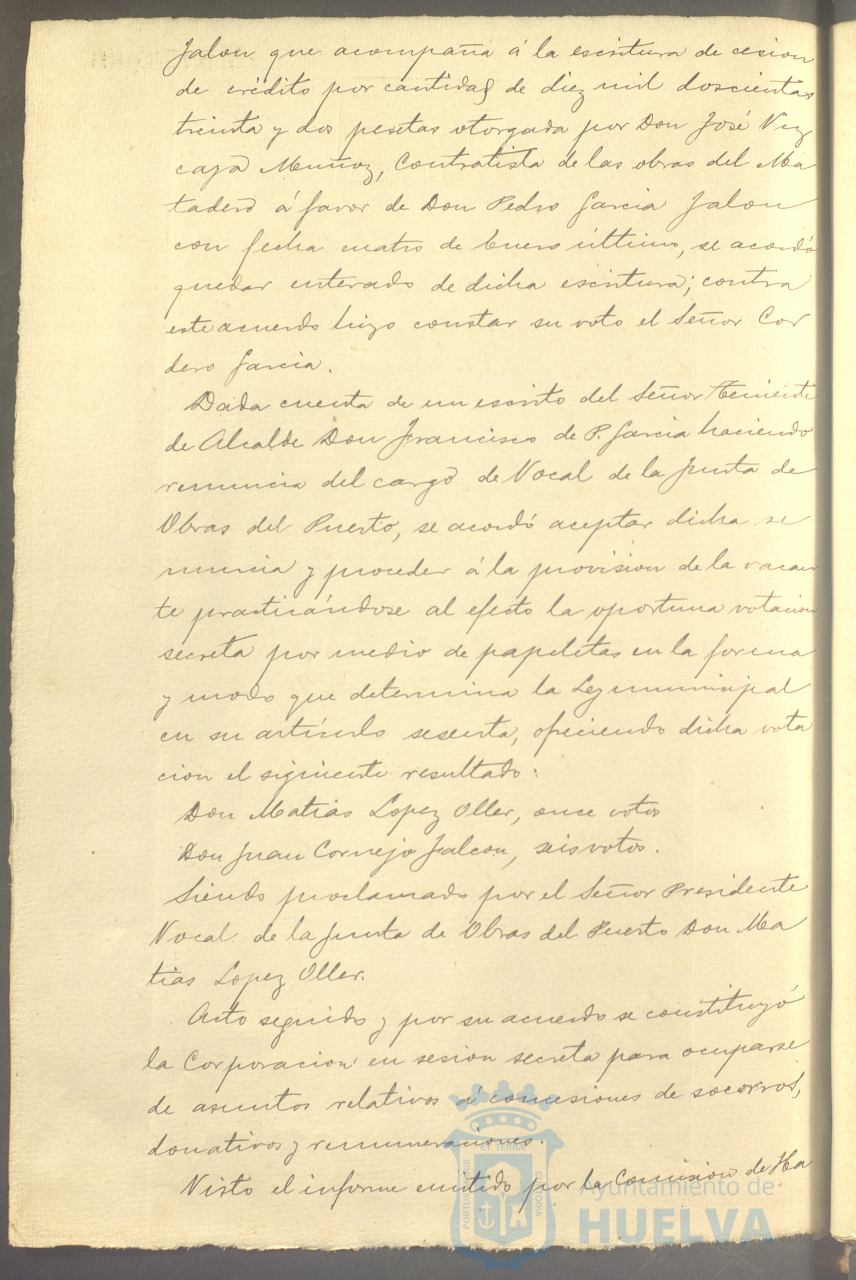 Jalon que acompaña á la escritura de cesion
de crédito por cantidad de diez mil doscientas
treinta y dos pesetas otorgada por Don José Viz
caya Muñoz, Contratista de las obras del Ma
tadero á favor de Don Pedro Garcia Jalon
con fecha cuatro de Enero último, se acordó
quedar enterado de dicha escritura; contra
este acuerdo hizo constar su voto el Señor Cor
dero Garcia.
Dada cuenta de un escrito del Señor Teniente
de Alcalde Don Francisco de P. Garcia haciendo
renuncia del cargo de Vocal de la Junta de
Obras del Puerto, se acordó aceptar dicha re
nuncia y proceder á la provision de la vacan
te practicándose al efecto la oportuna votacion
secreta por medio de papeletas en la forma
y modo que determina la Ley municipal
en su artículo sesenta, ofreciendo dicha vota
cion el siguiente resultado:
Don Matias Lopez Oller, once votos
Don Juan Cornejo Falcon, seis votos.
Siendo proclamado por el Señor Presidente
Vocal de la Junta de Obras del Puerto Don Ma
tias Lopez Oller.
Acto seguido y por su acuerdo se constituyó
la Corporacion en sesion secreta para ocuparse
de asuntos relativos á concesiones de socorros,
donativos y remuneraciones.
Visto el informe emitido por la Comision de Ha
Ayuntamiento de
HUELVA